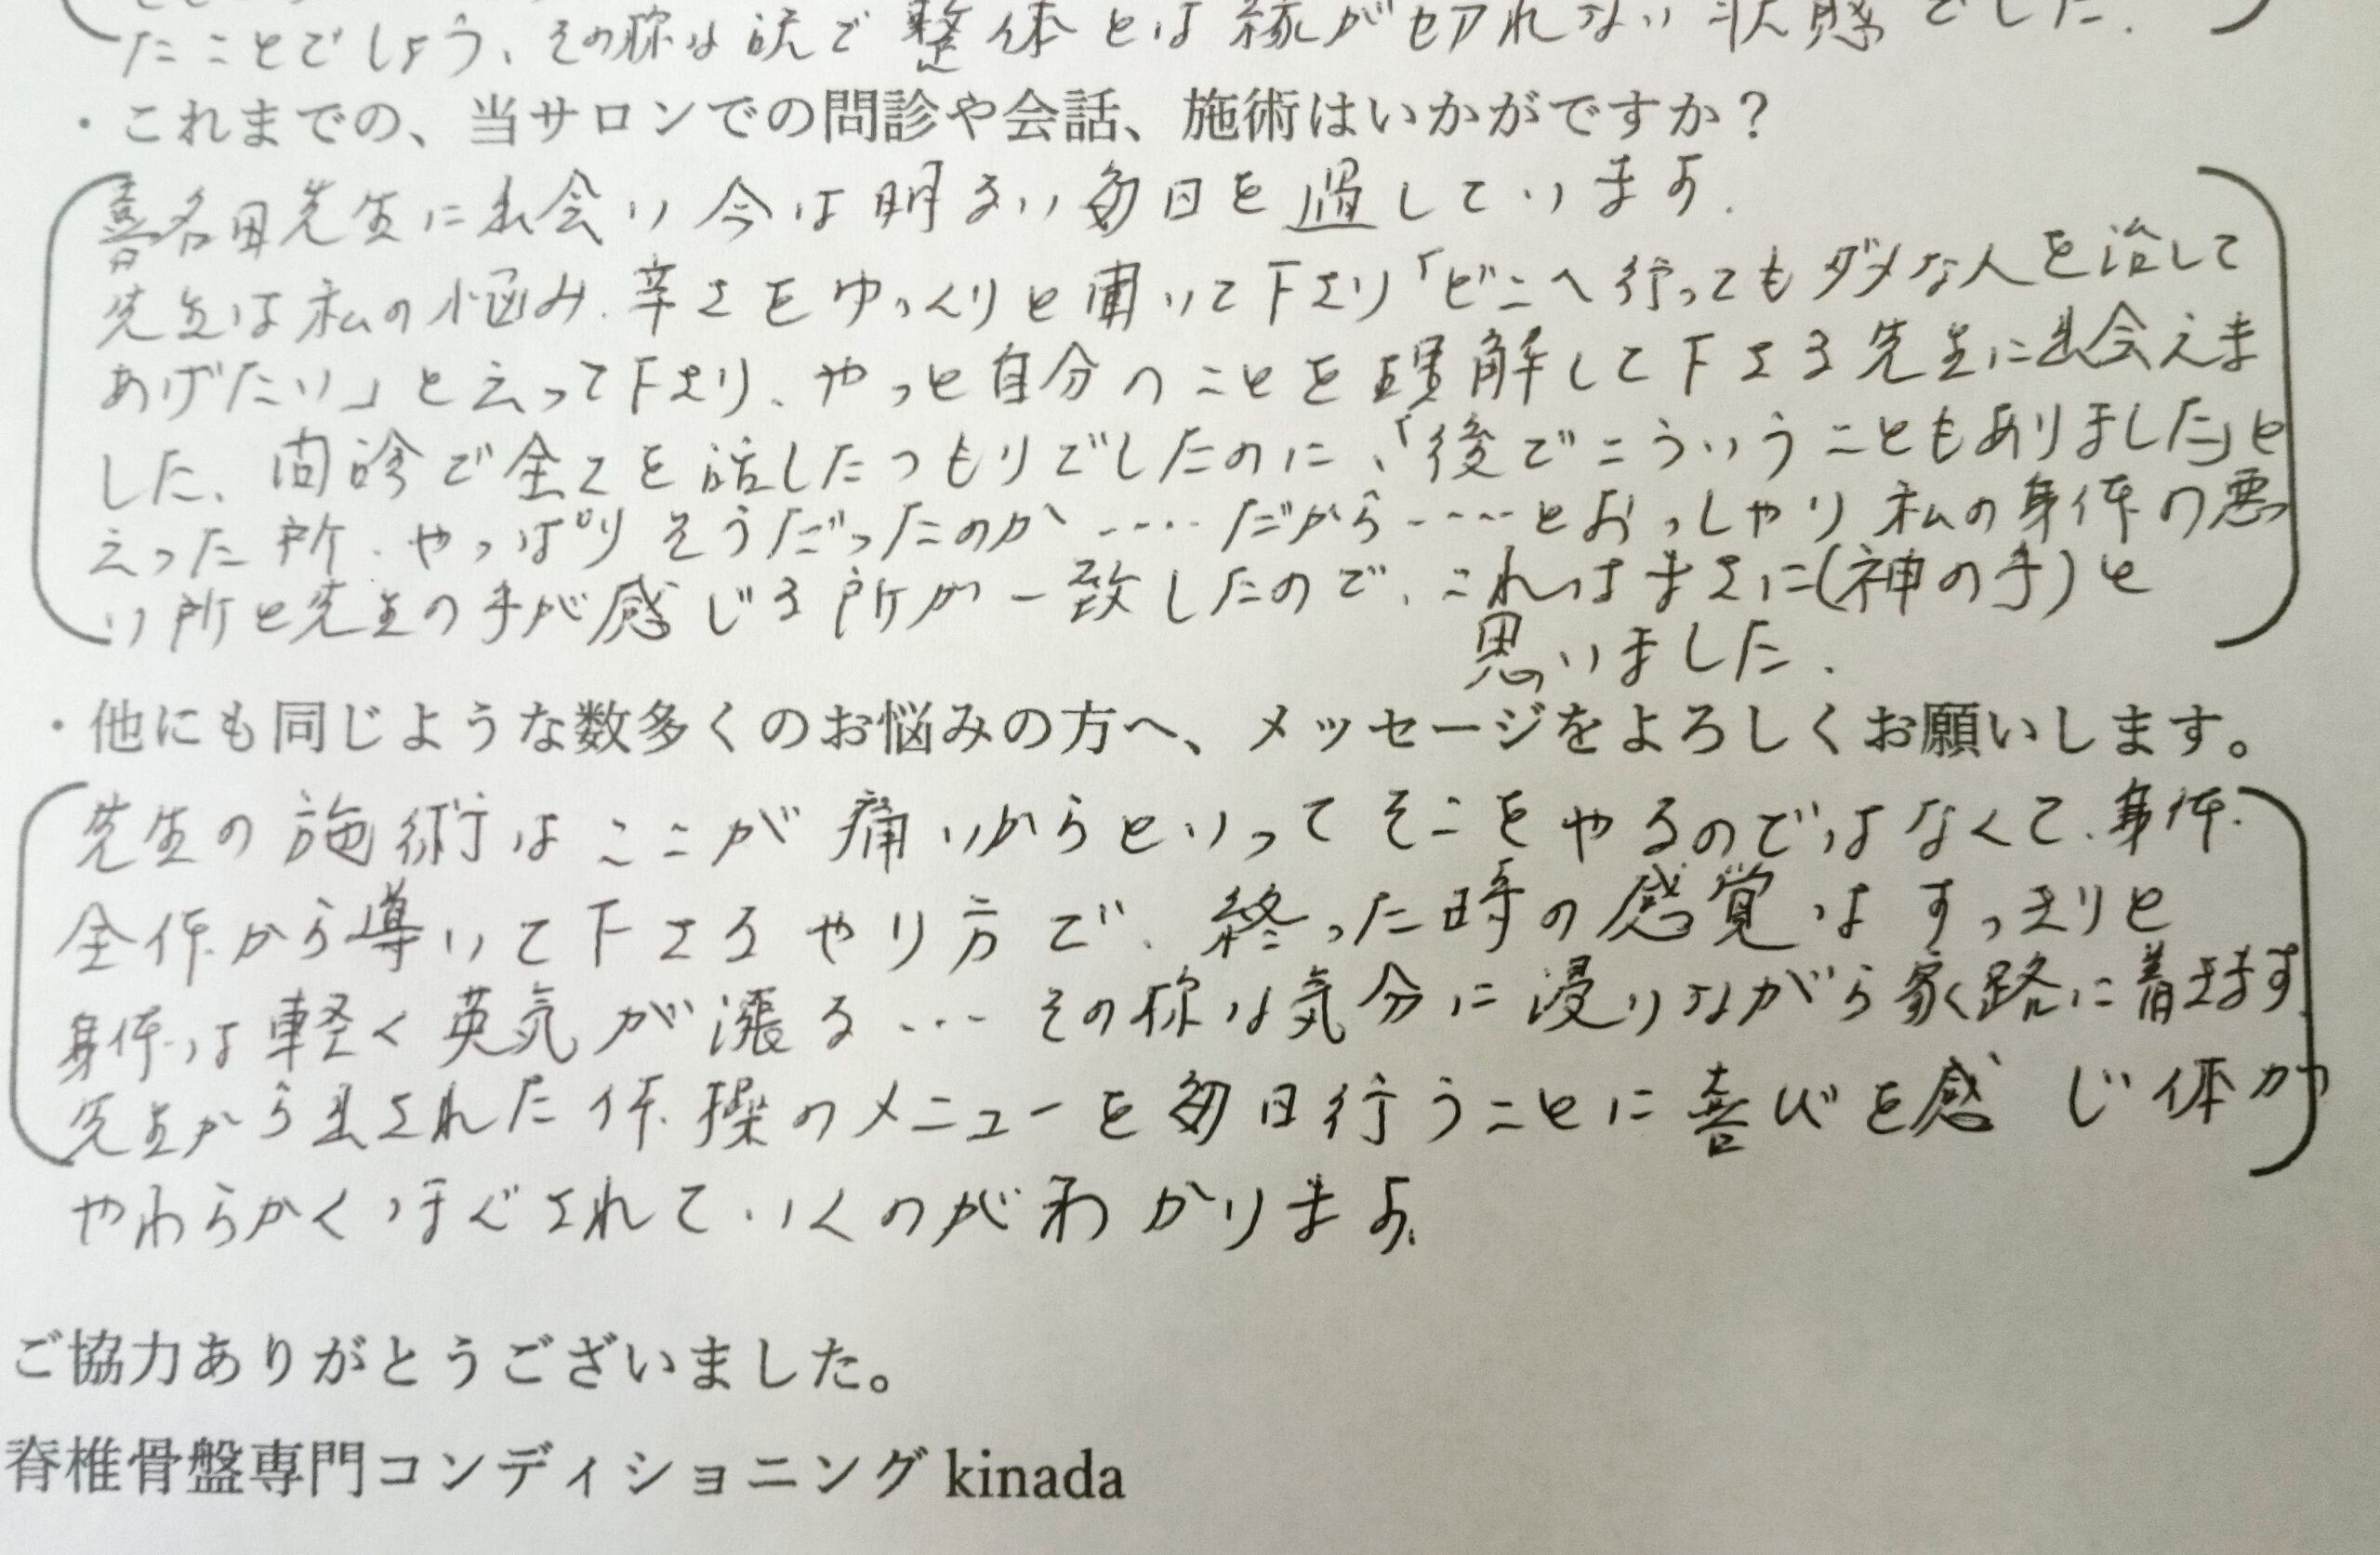 たことでしょう、その様な訳で整体とは縁が切れない状態でした.
・これまでの、当サロンでの問診や会話、施術はいかがですか？
喜名田先生に出会い今は明るい毎日を過しています.
先生は私の悩み.辛さをゆっくりと聞いて下さり「どこへ行ってもダメな人を治して
あげたい」と云って下さり、やっと自分のことを理解して下さる先生に出会えま
した、問診で全てを話したつもりでしたのに、「後でこういうこともありました」と
云った所.やっぱりそうだったのか……だから……とおっしゃり私の身体の悪
い所と先生の手が感じる所が一致したので、これはまさに(神の手)と
思いました.
・他にも同じような数多くのお悩みの方へ、メッセージをよろしくお願いします。
先生の施術はここが痛いからといってそこをやるのではなくて、身体
全体から導いて下さるやり方で、終った時の感覚はすっきりと
身体は軽く英気が漲る…その様な気分に浸りながら家路に着きます
先生から出された体操のメニューを毎日行うことに喜びを感じ体が
やわらかくほぐされていくのがわかります.
ご協力ありがとうございました。
脊椎骨盤専門コンディショニング kinada